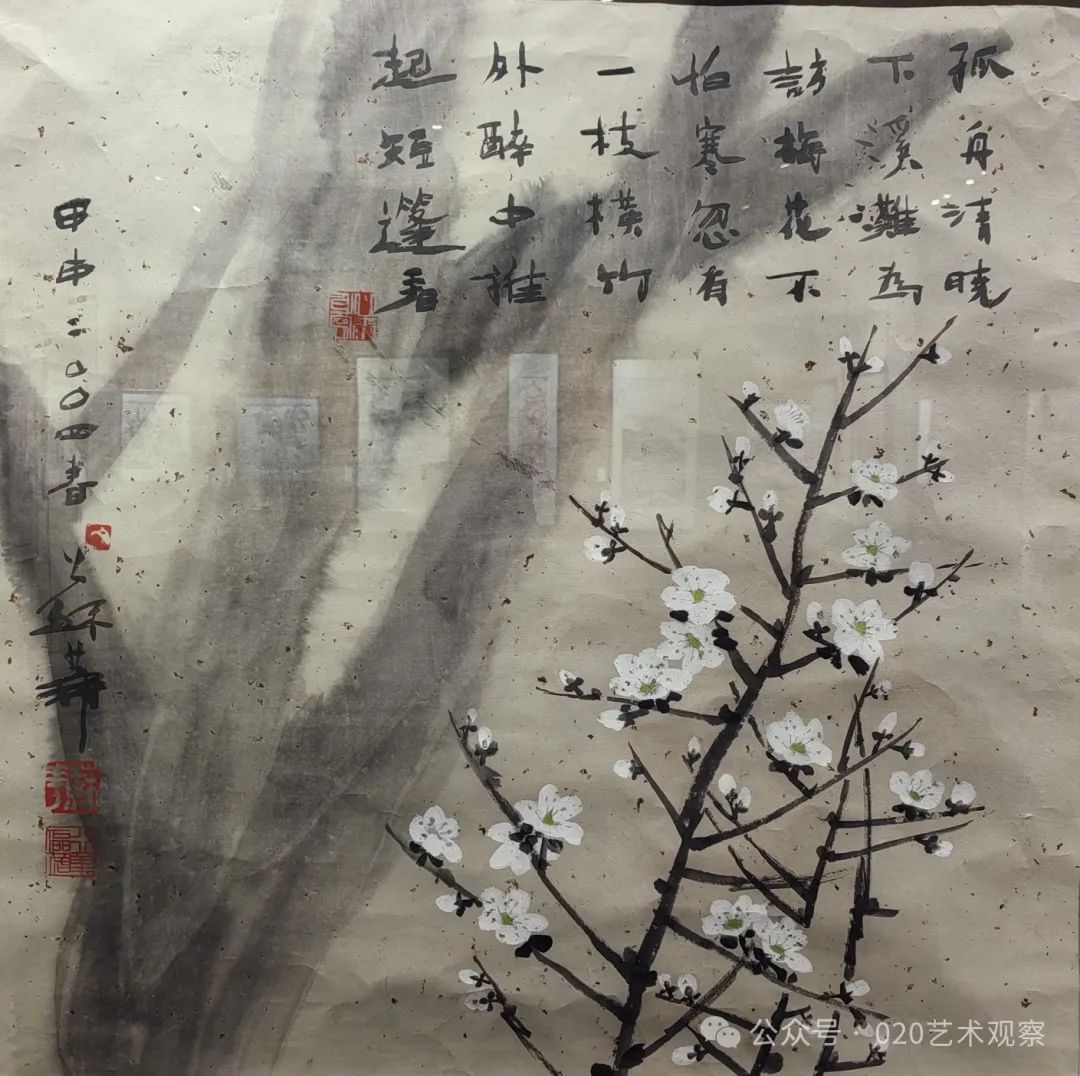 孤舟清晓
下溪灘为
訪梅花不
怕寒忽有
一枝横竹
外醉中推
起短篷看
甲申二〇〇四春
公众号·020艺术观察